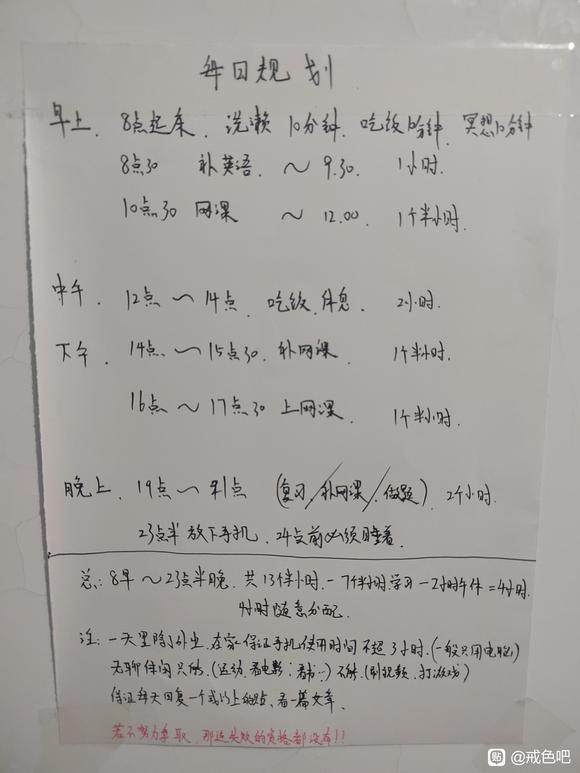 每日规划
早上. 8点起床. 洗漱 10分钟. 吃饭10分钟. 冥想10分钟
8点30 补英语. ~ 9.30. 1小时.
10点30 网课 ~ 12.00. 1个半小时.
中午. 12点 ~ 14点. 吃饭.休息. 2小时.
下午. 14点. ~ 15点30. 补网课. 1个半小时.
16点 ~ 17点30 上网课. 1个半小时.
晚上. 19点 ~ 21点 (复习/补网课/做题). 2个小时.
23点半 放下手机. 24点前必须睡着.
总: 8早 ~ 23点半晚. 共 13个半小时. - 7个半小时.学习 - 2小时午休 = 4小时.
4小时随意分配.
注: 一天里除了外出. 在家保证手机使用时间不超3小时. (一般只用电脑)
无聊休闲只能. (运动. 看电影; 看书..) 不能. (刷视频. 打游戏)
保证每天回复一个或以上的. 看一篇文章.
若不努力争取. 那连失败的资格都没有!!
贴 @戒色吧